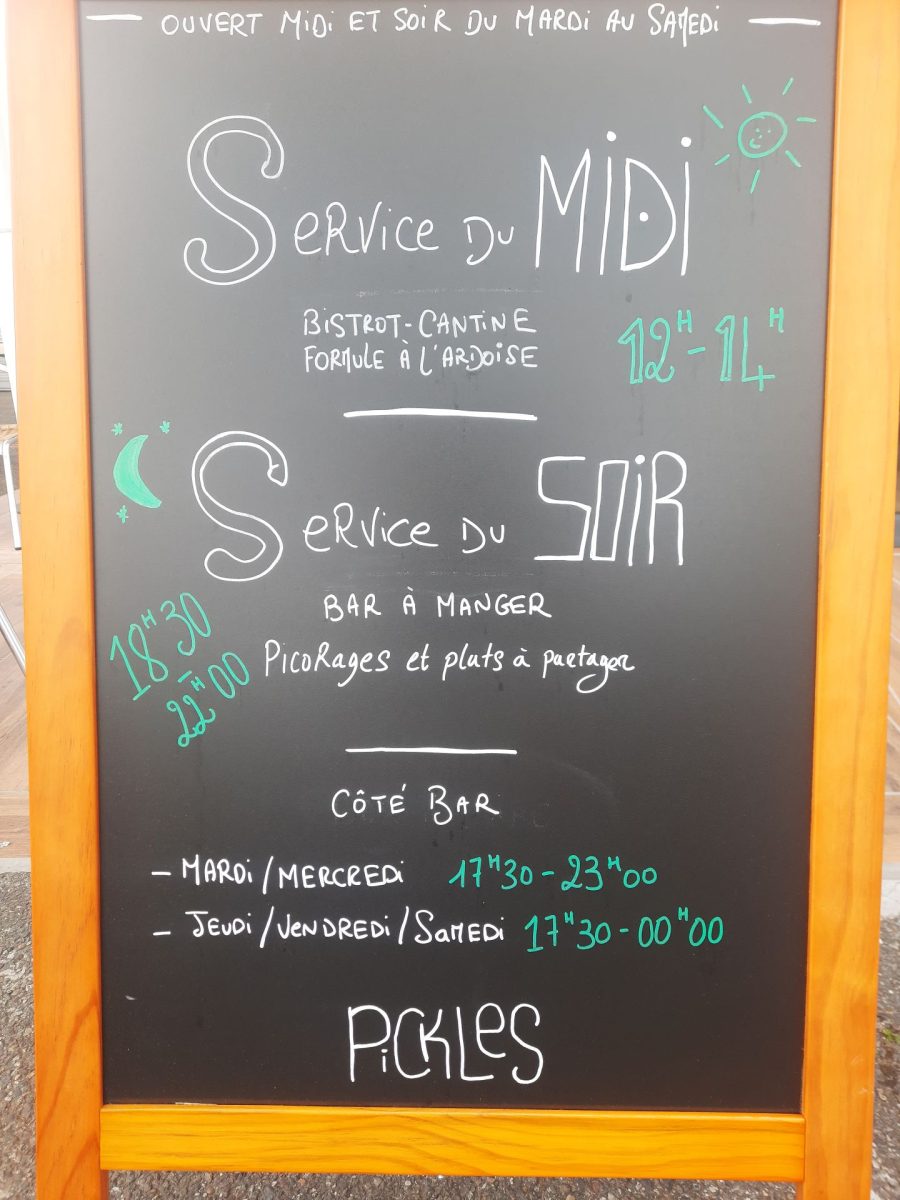 OUVERT MIDI ET SOIR DU MARDI AU SAMEDI
SERVICE DU MIDI
BISTROT-CANTINE
FORMULE À L'ARDOISE
12H-14H
SERVICE DU SOIR
BAR À MANGER
PICORAGES et plats à partager
18H30
-
22H00
CÔTÉ BAR
- MARDI/MERCREDI 17H30-23H00
- JEUDI/VENDREDI/SAMEDI 17H30-00H00
PICKLES